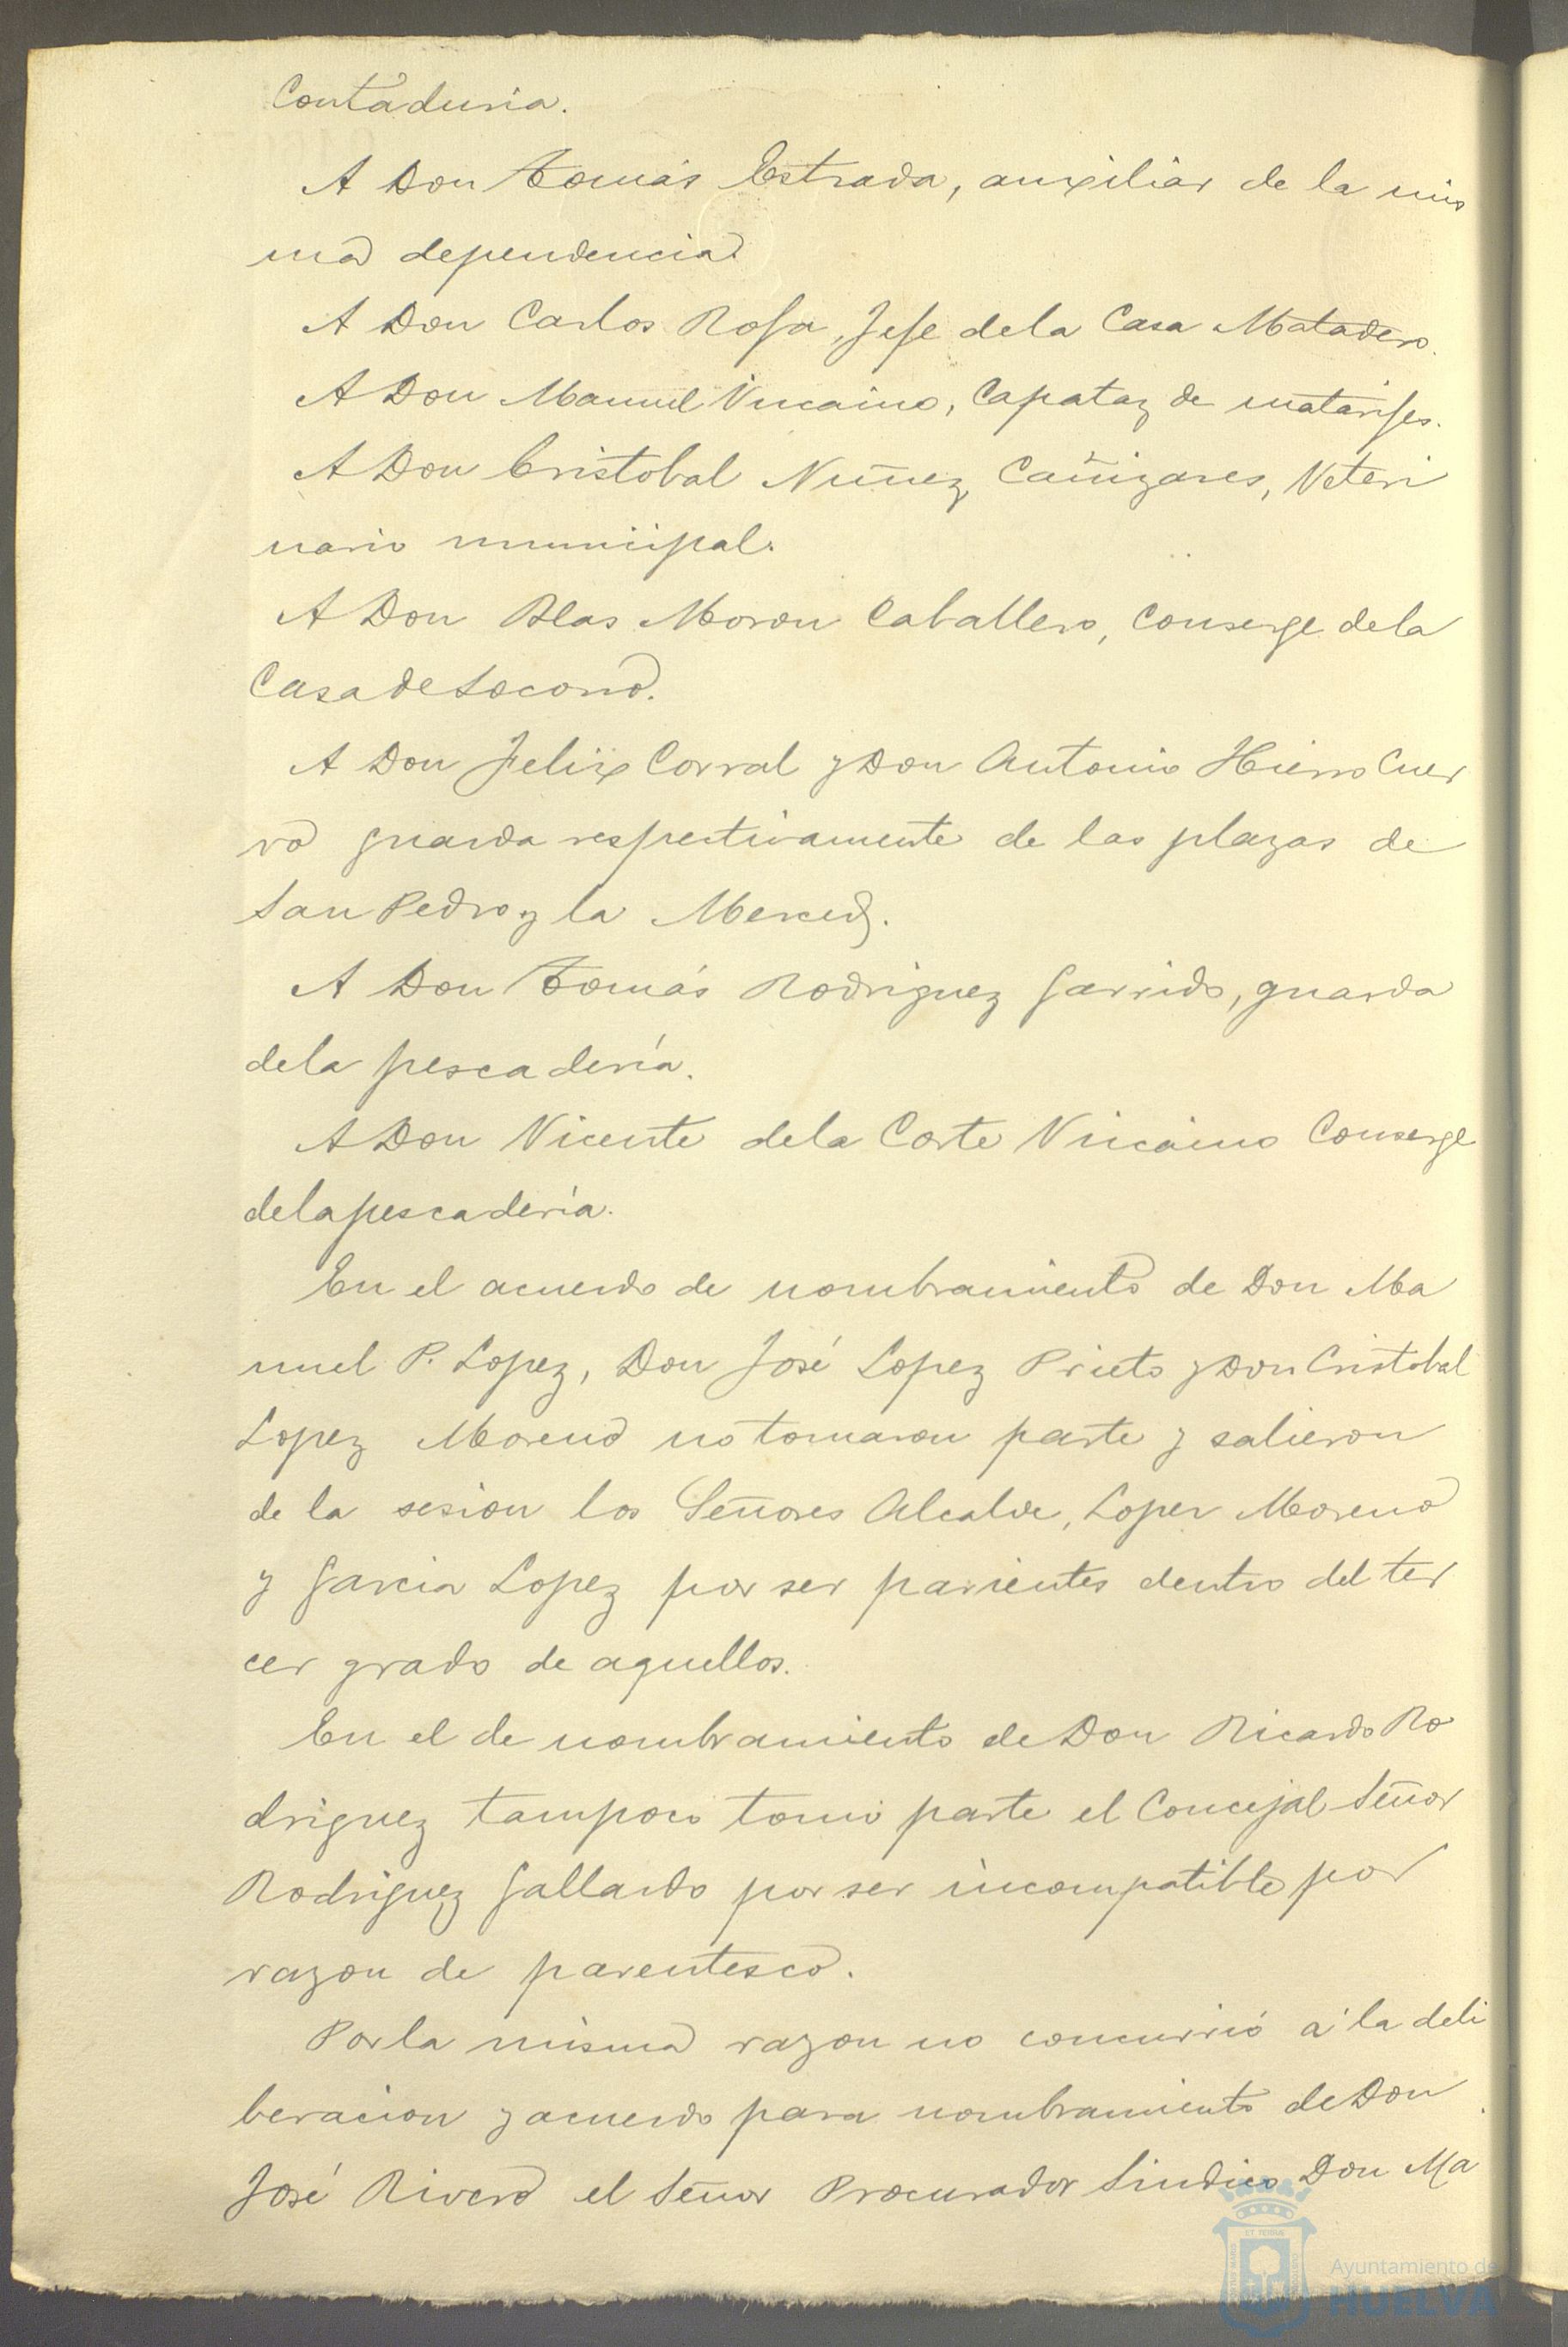 Contaduria.
A Don Tomás Estrada, auxiliar de la mis
ma dependencia
A Don Carlos Rosa, Jefe de la Casa Matadero.
A Don Manuel Vizcaino, Capataz de matarifes.
A Don Cristobal Nuñez Cañizares, Veteri
nario municipal.
A Don Blas Moron Caballero, Conserge de la
Casa de Socorro.
A Don Felix Corral y Don Antonio Hierro Cuer
vo guarda respectivamente de las plazas de
San Pedro y la Merced.
A Don Tomás Rodriguez Garrido, guarda
de la pescadería.
A Don Vicente de la Corte Vizcaino Conserge
de la pescadería.
En el acuerdo de nombramiento de Don Ma
nuel P. Lopez, Don José Lopez Prieto y Don Cristobal
Lopez Moreno no tomaron parte y salieron
de la sesion los Señores Alcalde, Lopez Moreno
y Garcia Lopez por ser parientes dentro del ter
cer grado de aquellos.
En el de nombramiento de Don Ricardo Ro
driguez tampoco tomó parte el Concejal Señor
Rodriguez Gallardo por ser incompatible por
razon de parentesco.
Por la misma razon no concurrió á la deli
beracion y acuerdo para nombramiento de Don
José Rivero el Señor Procurador Sindico Don Ma
Ayuntamiento de
HUELVA